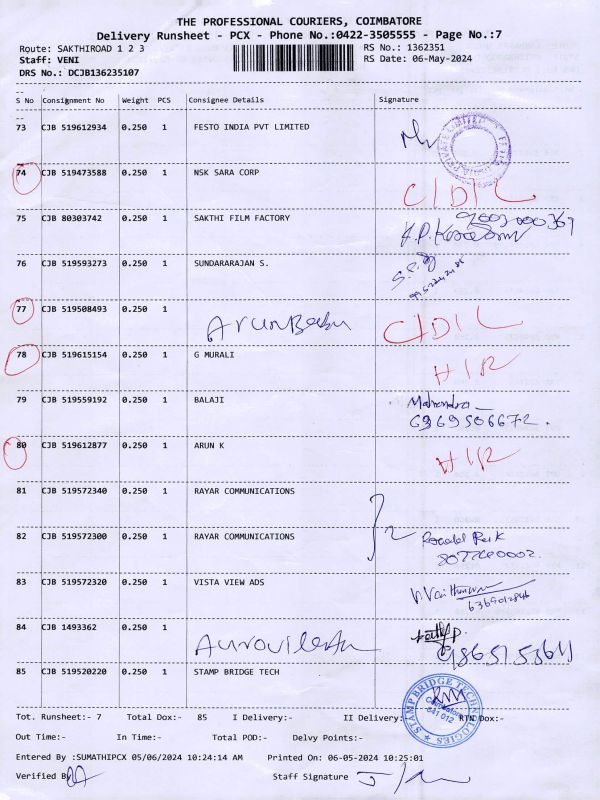 THE PROFESSIONAL COURIERS, COIMBATORE
Delivery Runsheet - PCX - Phone No.:0422-3505555 - Page No.:7
Route: SAKTHIROAD 1 2 3 RS No.: 1362351
Staff: VENI RS Date: 06-May-2024
DRS No.: DCJB136235107
S No Consignment No Weight PCS Consignee Details Signature
73 CJB 519612934 0.250 1 FESTO INDIA PVT LIMITED
74 CJB 519473588 0.250 1 NSK SARA CORP
C/D/L
75 CJB 80303742 0.250 1 SAKTHI FILM FACTORY
76 CJB 519593273 0.250 1 SUNDARARAJAN S.
77 CJB 519508493 0.250 1
ArunBabu C/D/L
78 CJB 519615154 0.250 1 G MURALI
79 CJB 519559192 0.250 1 BALAJI Mahendra
6369506672.
80 CJB 519612877 0.250 1 ARUN K
81 CJB 519572340 0.250 1 RAYAR COMMUNICATIONS
82 CJB 519572300 0.250 1 RAYAR COMMUNICATIONS
83 CJB 519572320 0.250 1 VISTA VIEW ADS
84 CJB 1493362 0.250 1
85 CJB 519520220 0.250 1 STAMP BRIDGE TECH
STAMP BRIDGE TECHNOLOGIES
Coimbatore
641 012
Tot. Runsheet:- 7 Total Dox:- 85 I Delivery:- II Delivery:- RTN Dox:-
Out Time:- In Time:- Total POD:- Delvy Points:-
Entered By :SUMATHIPCX 05/06/2024 10:24:14 AM Printed On: 06-05-2024 10:25:01
Verified By Staff Signature